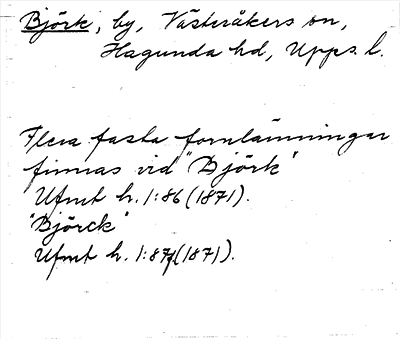 Björk, by, Västeråkers sn,
Hagunda hd, Upps. l.
Flera fasta fornlämningar
finnas vid "Björk"
Ufmt h. 1:86 (1871).
"Björck"
Ufmt h. 1:87 (1871).